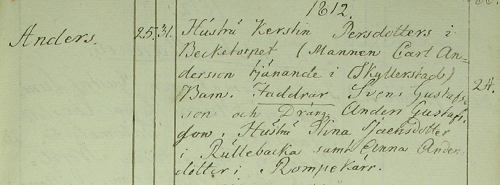 1812.
Anders. 25. 31. Hustru Kerstin Persdotters i
Becketorpet (Mannen Carl An=
dersson tjänande i Skyllerstad)
Barn. Faddrar Sven Gustafs= 24.
son och Dräng Anders Gustafs
son, Hustru Stina Isacsdotter
i Rullebacka samt Anna Anders
dotter i Rompekärr.